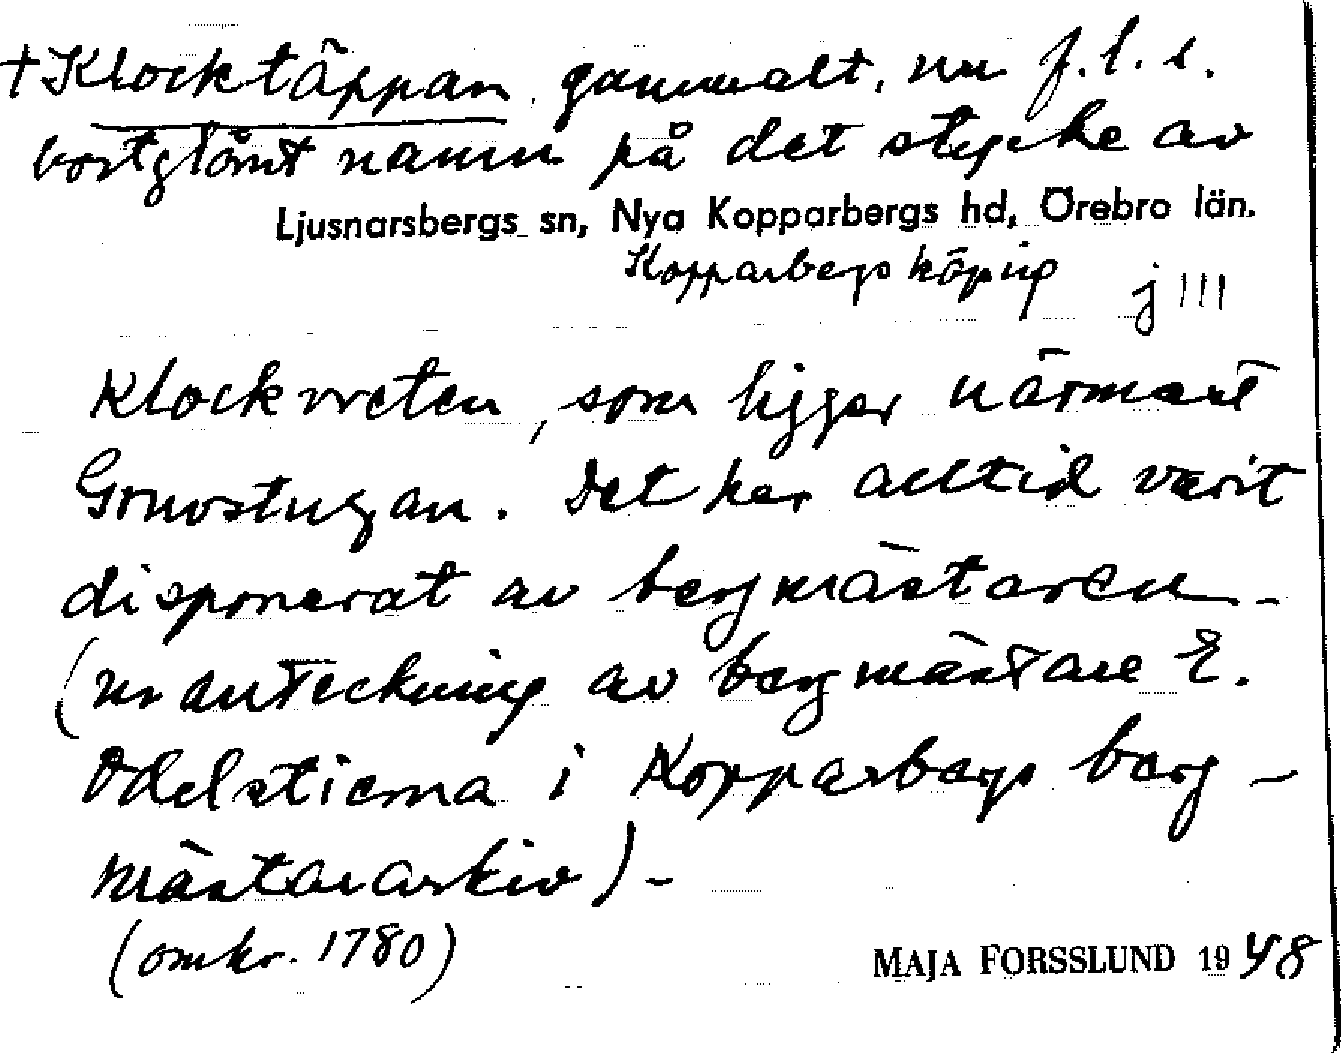 + Klocktäppan, gammalt, nu f.l.s.
bortglömt namn på det stycke av
Ljusnarsbergs sn, Nya Kopparbergs hd, Örebro län.
Kopparbergs köping j III
Klockvreten, som ligger närmast
Gruvstugan. Det har alltid varit
disponerat av bergmästaren -
(ur anteckning av bergmästare E.
Odelstierna i Kopparbergs berg-
mästararkiv) -
(omkr. 1780)
MAJA FORSSLUND 1948